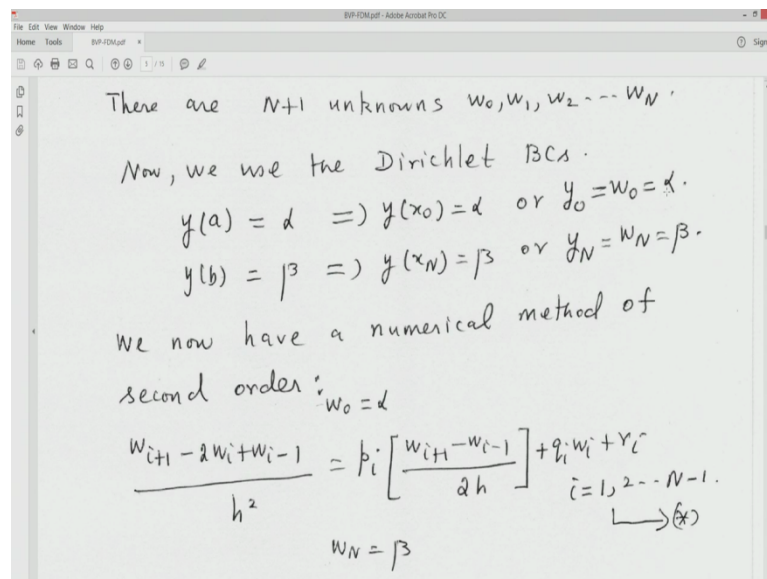 BVP-FDM.pdf - Adobe Acrobat Pro DC
File Edit View Window Help
Home Tools BVP-FDM.pdf × Sign
5 / 15
There are N+1 unknowns w₀, w₁, w₂ --- w_N.
Now, we use the Dirichlet BCs.
y(a) = α => y(x₀) = α or y₀ = w₀ = α.
y(b) = β => y(x_N) = β or y_N = w_N = β.
We now have a numerical method of
second order: w₀ = α
(w_{i+1} - 2w_i + w_{i-1}) / h² = p_i [(w_{i+1} - w_{i-1}) / 2h] + q_i w_i + r_i
i = 1, 2 -- N-1.
↳ (*)
w_N = β